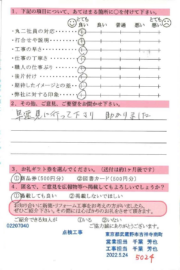 1. 下記の項目について、あてはまる箇所に○を付けて下さい。
とても良い 良い 普通 悪い とても悪い
・丸二社員の対応
・打合せや説明
・工事の早さ
・仕事の丁寧さ
・職人の仕事ぶり
・後片付け
・期待したイメージとの差
・弊社に対する印象
2. その他、ご意見、ご要望をお聞かせ下さい。
見に行って下さり 助かりました
3. お礼ギフト券を選んでください。(送付は約1ヶ月後です)
①商品券(500円分) ②図書カード(500円分)
4. 匿名で、ご意見を広報物等へ掲載してもよろしいでしょうか?
①掲載しても良い ②掲載しないでほしい
ご紹介できる知人が ①いる ②いない
02207340
点検工事
東京都武蔵野市吉祥寺南町
営業担当 千葉 芳也
工事担当 千葉 芳也
2022.5.24
5024